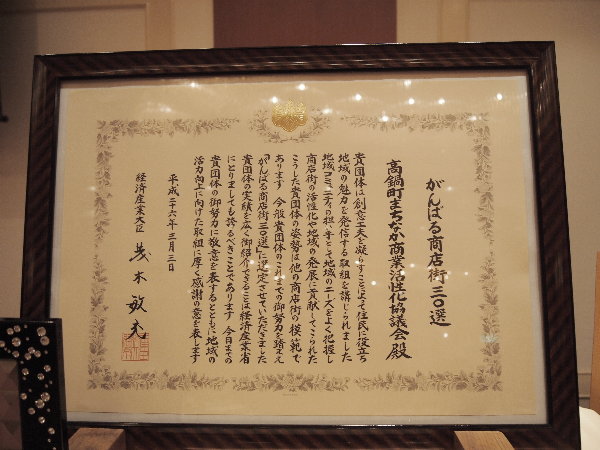 がんばる商店街三〇選
高鍋町まちなか商業活性化協議会殿
貴団体は創意工夫を凝らすことによって住民に役立ち
地域の魅力を発信する取組を講じられました
地域コミュニティの担い手として地域のニーズをよく把握し
商店街の活性化や地域の発展に貢献してこられた
こうした貴団体の姿勢は他の商店街の模範で
あります 今般貴団体のこれまでの御努力を踏まえ
「がんばる商店街三〇選」に選定させていただきました
貴団体の実績を広く御紹介できることは経済産業省
にとりましても誇るべきことであります 今日までの
貴団体の御努力に敬意を表するとともに地域の
活力向上に向けた取組に厚く感謝の意を表します
平成二十六年三月三日
経済産業大臣 茂木敏充